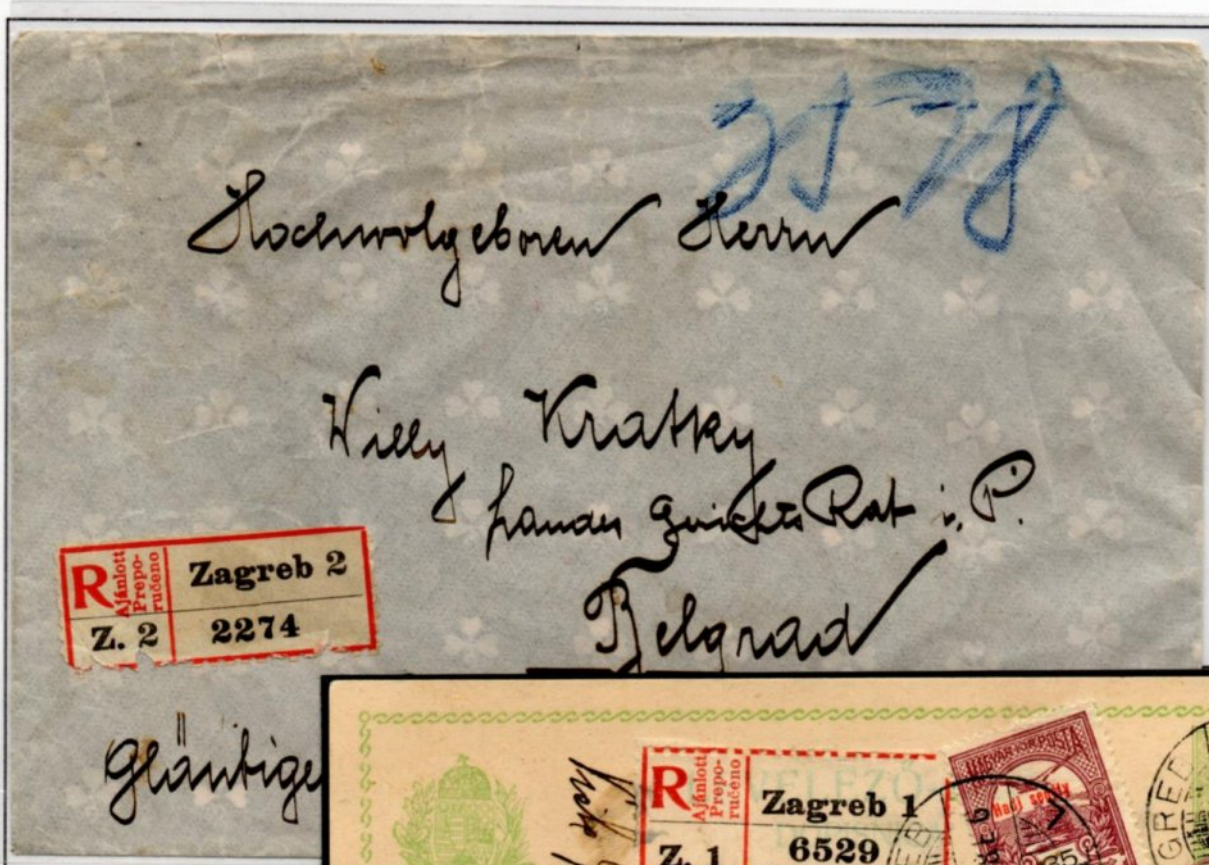 Hochwolgeboren Herrn
Willy Kratky
Landes Gerichts Rat i. P.
Belgrad
R Ajánlott Prepo-ručeno Zagreb 2
Z. 2 2274
Gläubige
R Ajánlott Prepo-ručeno Zagreb 1
Z. 1 6529
MAGYAR KIR. POSTA
Hadi segély